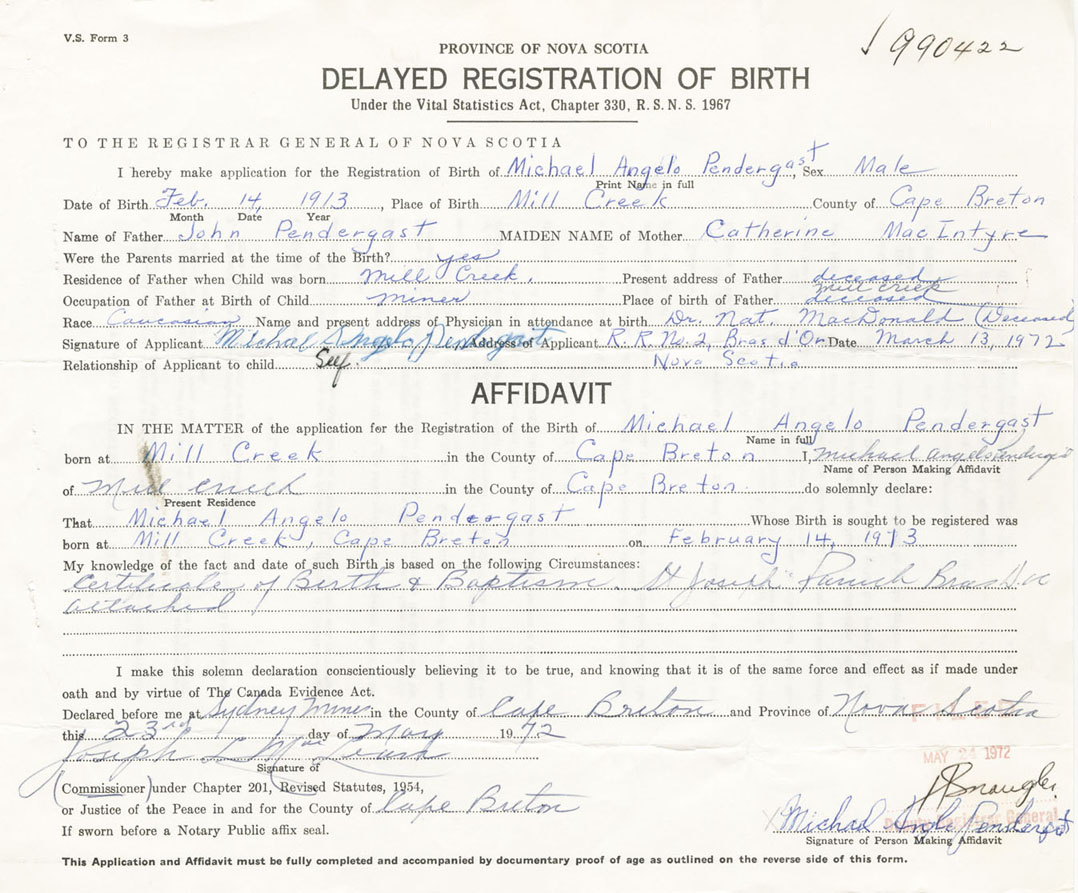 V.S. Form 3
PROVINCE OF NOVA SCOTIA
990422
DELAYED REGISTRATION OF BIRTH
Under the Vital Statistics Act, Chapter 330, R. S. N. S. 1967
TO THE REGISTRAR GENERAL OF NOVA SCOTIA
I hereby make application for the Registration of Birth of Michael Angelo Pendergast, Sex Male
Print Name in full
Date of Birth Feb. 14, 1913, Place of Birth Mill Creek County of Cape Breton
Month Date Year
Name of Father John Pendergast MAIDEN NAME of Mother Catherine MacIntyre
Were the Parents married at the time of the Birth? yes
Residence of Father when Child was born Mill Creek. Present address of Father deceased
Mill Creek
Occupation of Father at Birth of Child miner Place of birth of Father deceased
Race Caucasian Name and present address of Physician in attendance at birth Dr. Nat. MacDonald (Deceased)
Signature of Applicant Michael Angelo Pendergast Address of Applicant R. R. No. 2, Bras d'Or Date March 13, 1972
Relationship of Applicant to child Self. Nova Scotia
AFFIDAVIT
IN THE MATTER of the application for the Registration of the Birth of Michael Angelo Pendergast
Name in full
born at Mill Creek in the County of Cape Breton I, Michael Angelo Pendergast
Name of Person Making Affidavit
of Mill Creek in the County of Cape Breton do solemnly declare:
Present Residence
That Michael Angelo Pendergast Whose Birth is sought to be registered was
born at Mill Creek, Cape Breton on February 14, 1913
My knowledge of the fact and date of such Birth is based on the following Circumstances:
Certificate of Birth & Baptism. St Joseph Parish Bras d'Or
attached
I make this solemn declaration conscientiously believing it to be true, and knowing that it is of the same force and effect as if made under
oath and by virtue of The Canada Evidence Act.
Declared before me at Sydney Mines in the County of Cape Breton and Province of Nova Scotia
this 23rd day of May 1972
Joseph L Mac
MAY 24 1972
Signature of
(Commissioner) under Chapter 201, Revised Statutes, 1954,
or Justice of the Peace in and for the County of Cape Breton
Deputy Registrar General
Michael Angelo Pendergast
If sworn before a Notary Public affix seal.
Signature of Person Making Affidavit
This Application and Affidavit must be fully completed and accompanied by documentary proof of age as outlined on the reverse side of this form.